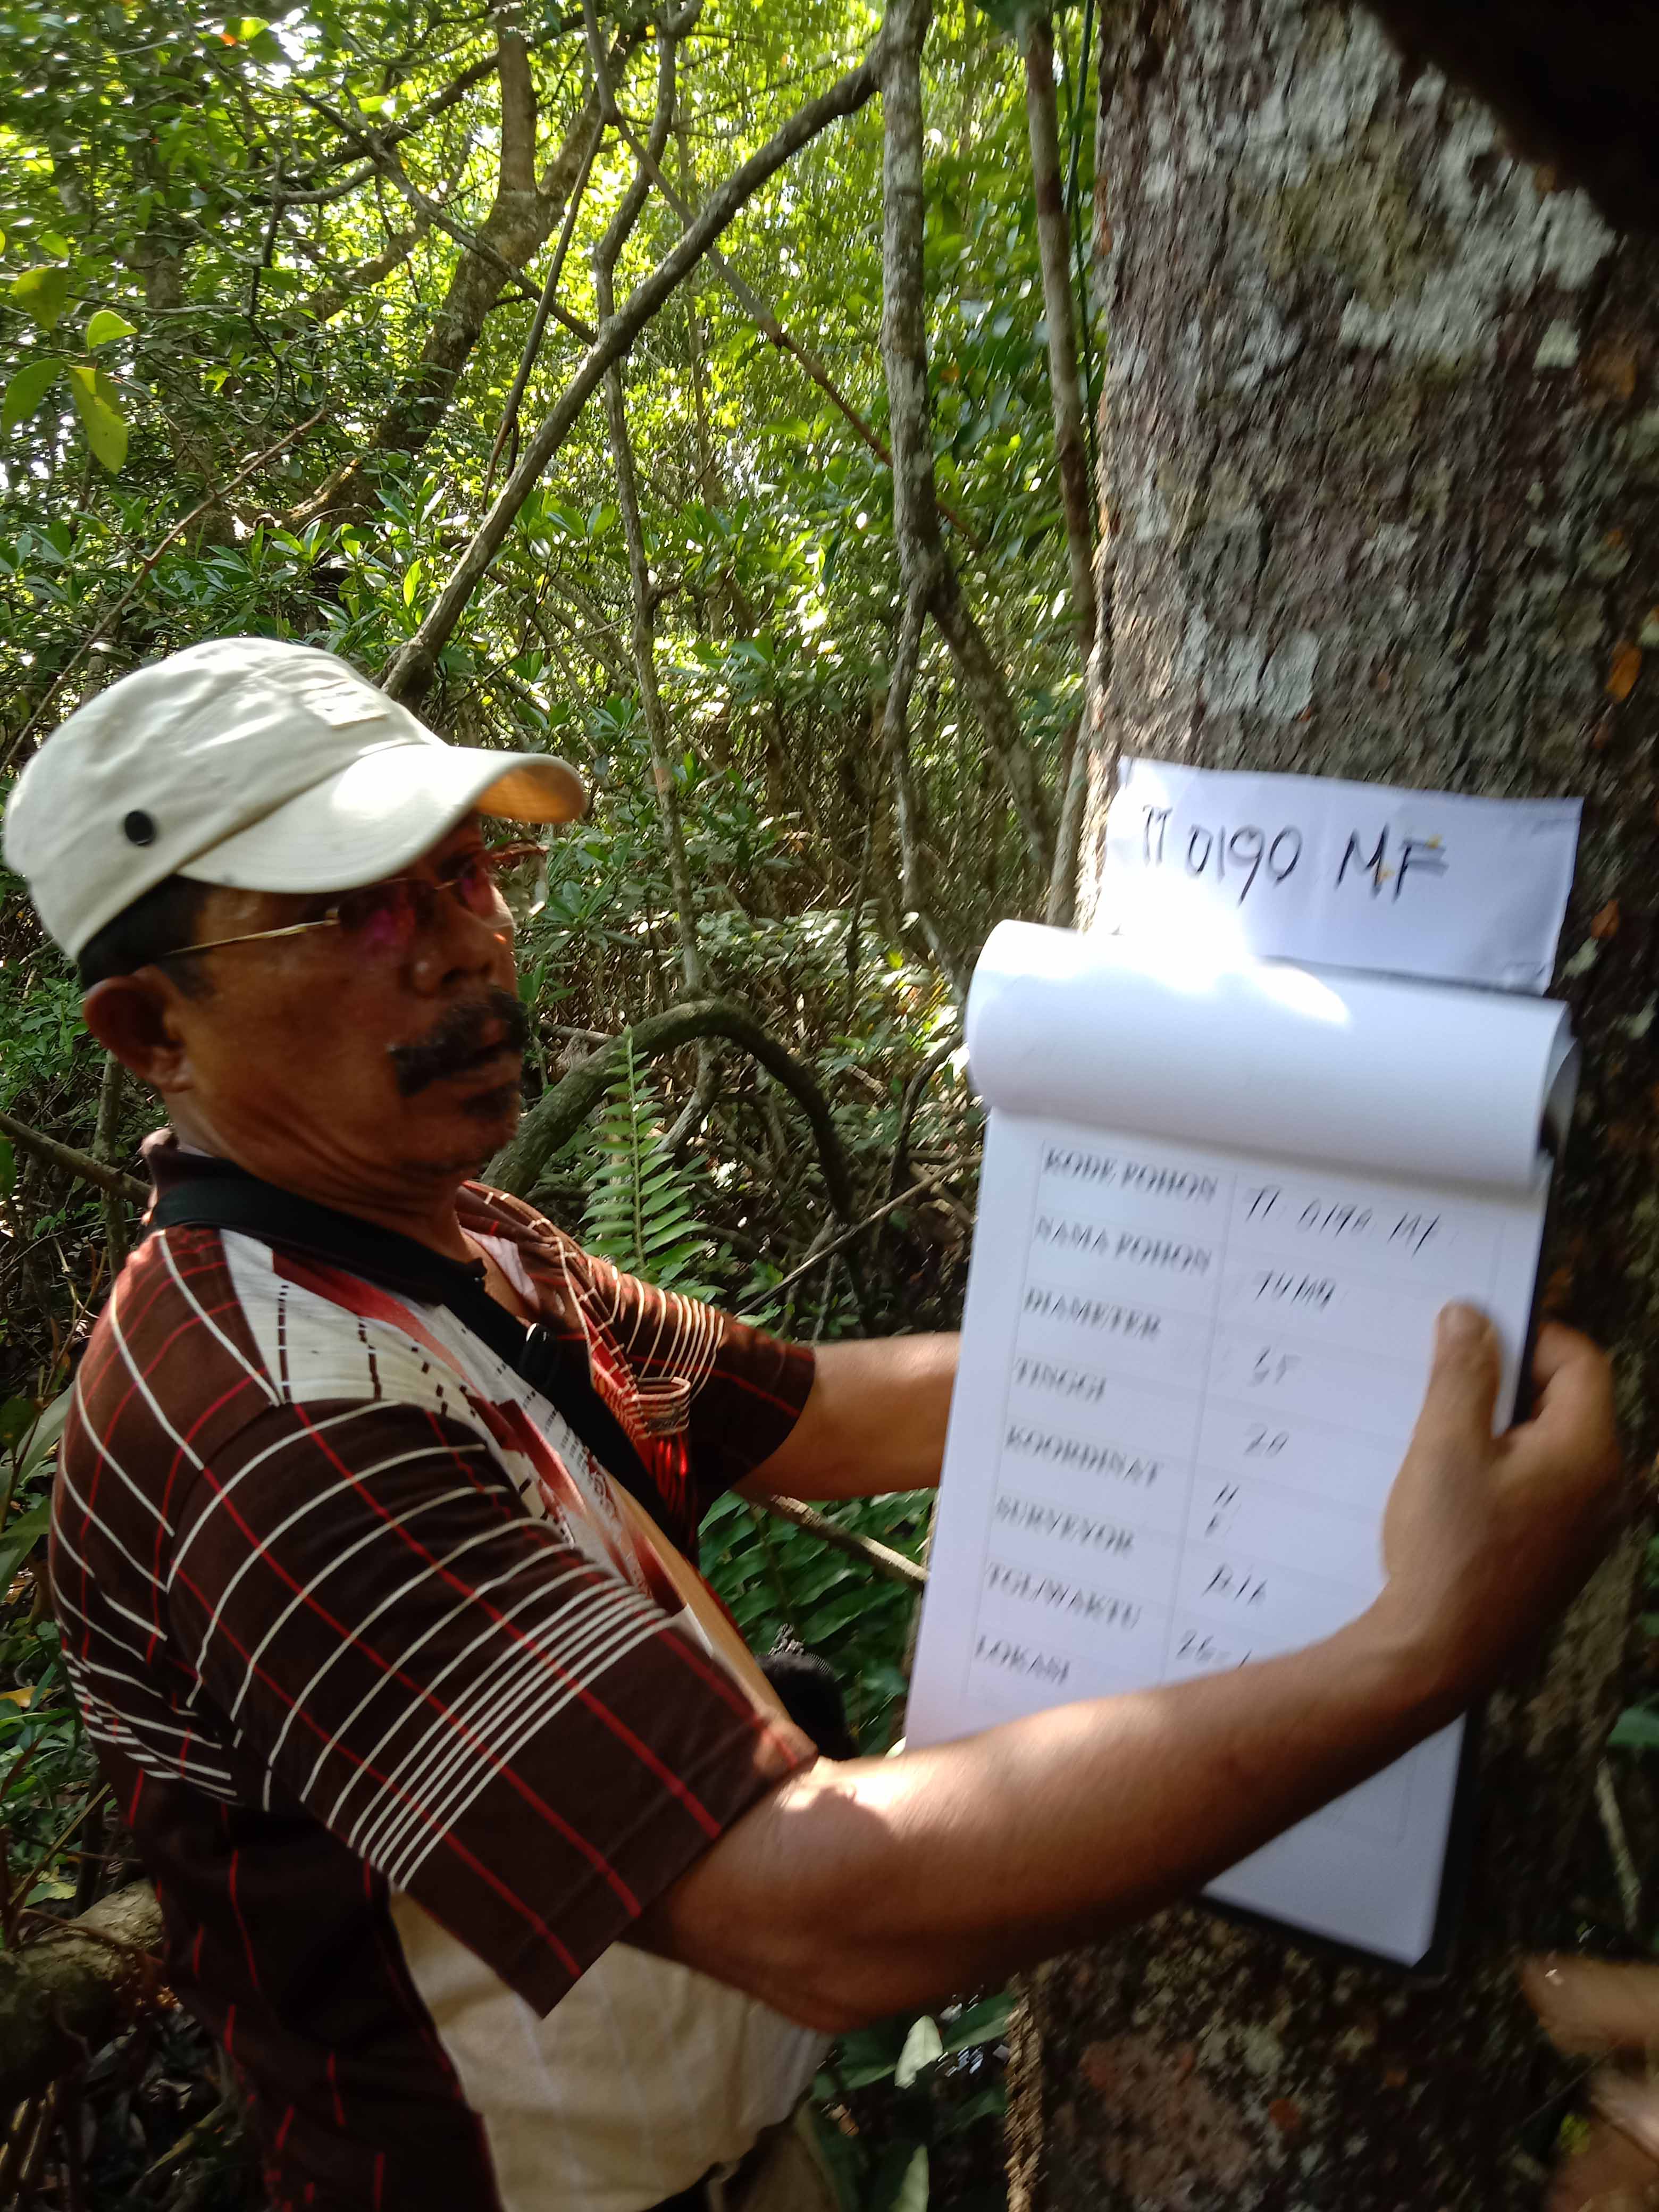 TT 0190 MF
KODE POHON TT 0190 MF
NAMA POHON TUMU
DIAMETER
TINGGI 20
KOORDINAT N:
E:
SURVEYOR
TGL/WAKTU
LOKASI